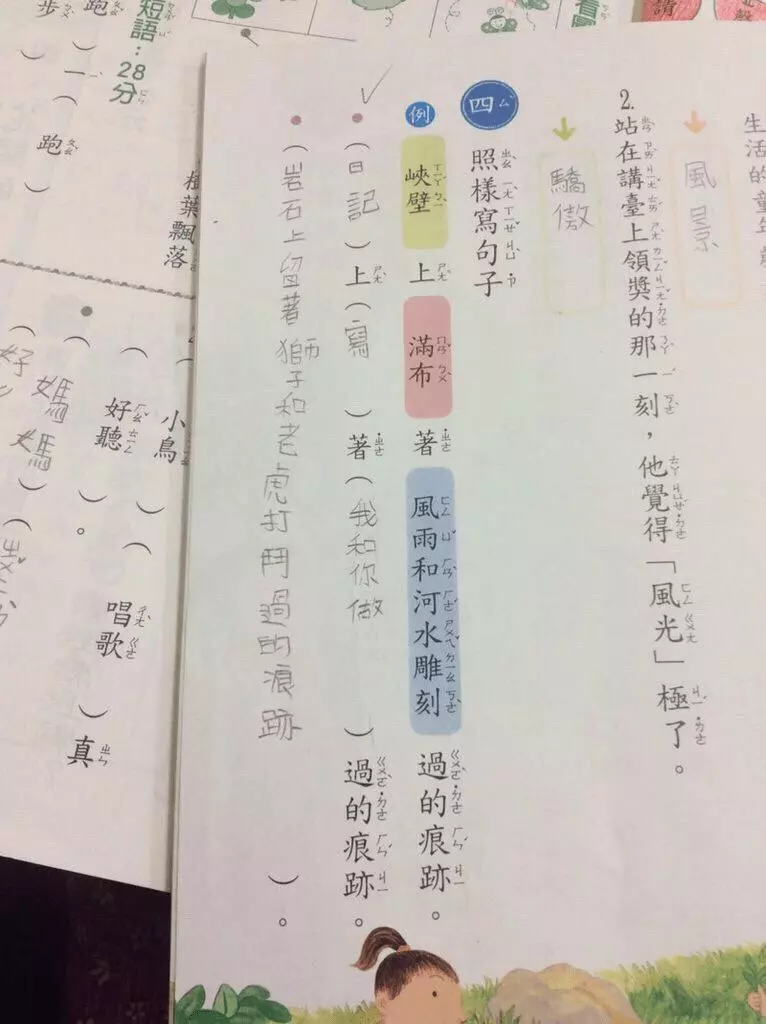 生活的童年
風景
2. 站在講臺上領獎的那一刻，他覺得「風光」極了。
驕傲
四 照樣寫句子
例 峽壁上滿布著風雨和河水雕刻過的痕跡。
（日記）上（寫）著（我和你做）過的痕跡。
（岩石上留著獅子和老虎打鬥過的痕跡）。
看圖
短語：28分
跑
步
（一（跑）
葉飄落
小鳥（）
（好聽）。（唱歌）真
（媽媽）